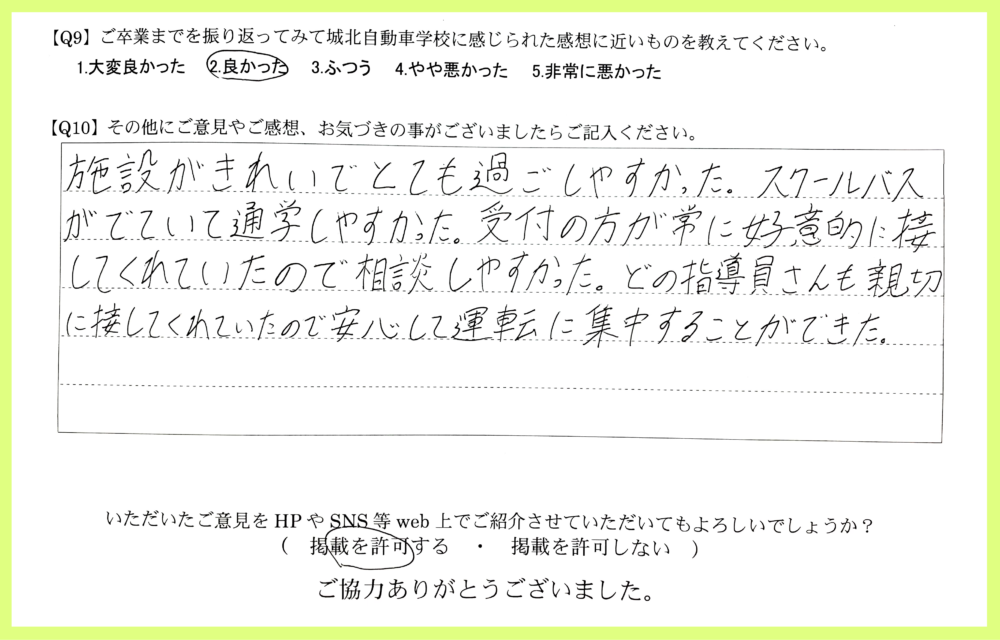 【Q9】ご卒業までを振り返ってみて城北自動車学校に感じられた感想に近いものを教えてください。
1.大変良かった 2.良かった 3.ふつう 4.やや悪かった 5.非常に悪かった
【Q10】その他にご意見やご感想、お気づきの事がございましたらご記入ください。
施設がきれいでとても過ごしやすかった。スクールバス
がでていて通学しやすかった。受付の方が常に好意的に接
してくれていたので相談しやすかった。どの指導員さんも親切
に接してくれていたので安心して運転に集中することができた。
いただいたご意見をHPやSNS等web上でご紹介させていただいてもよろしいでしょうか?
( 掲載を許可する ・ 掲載を許可しない )
ご協力ありがとうございました。